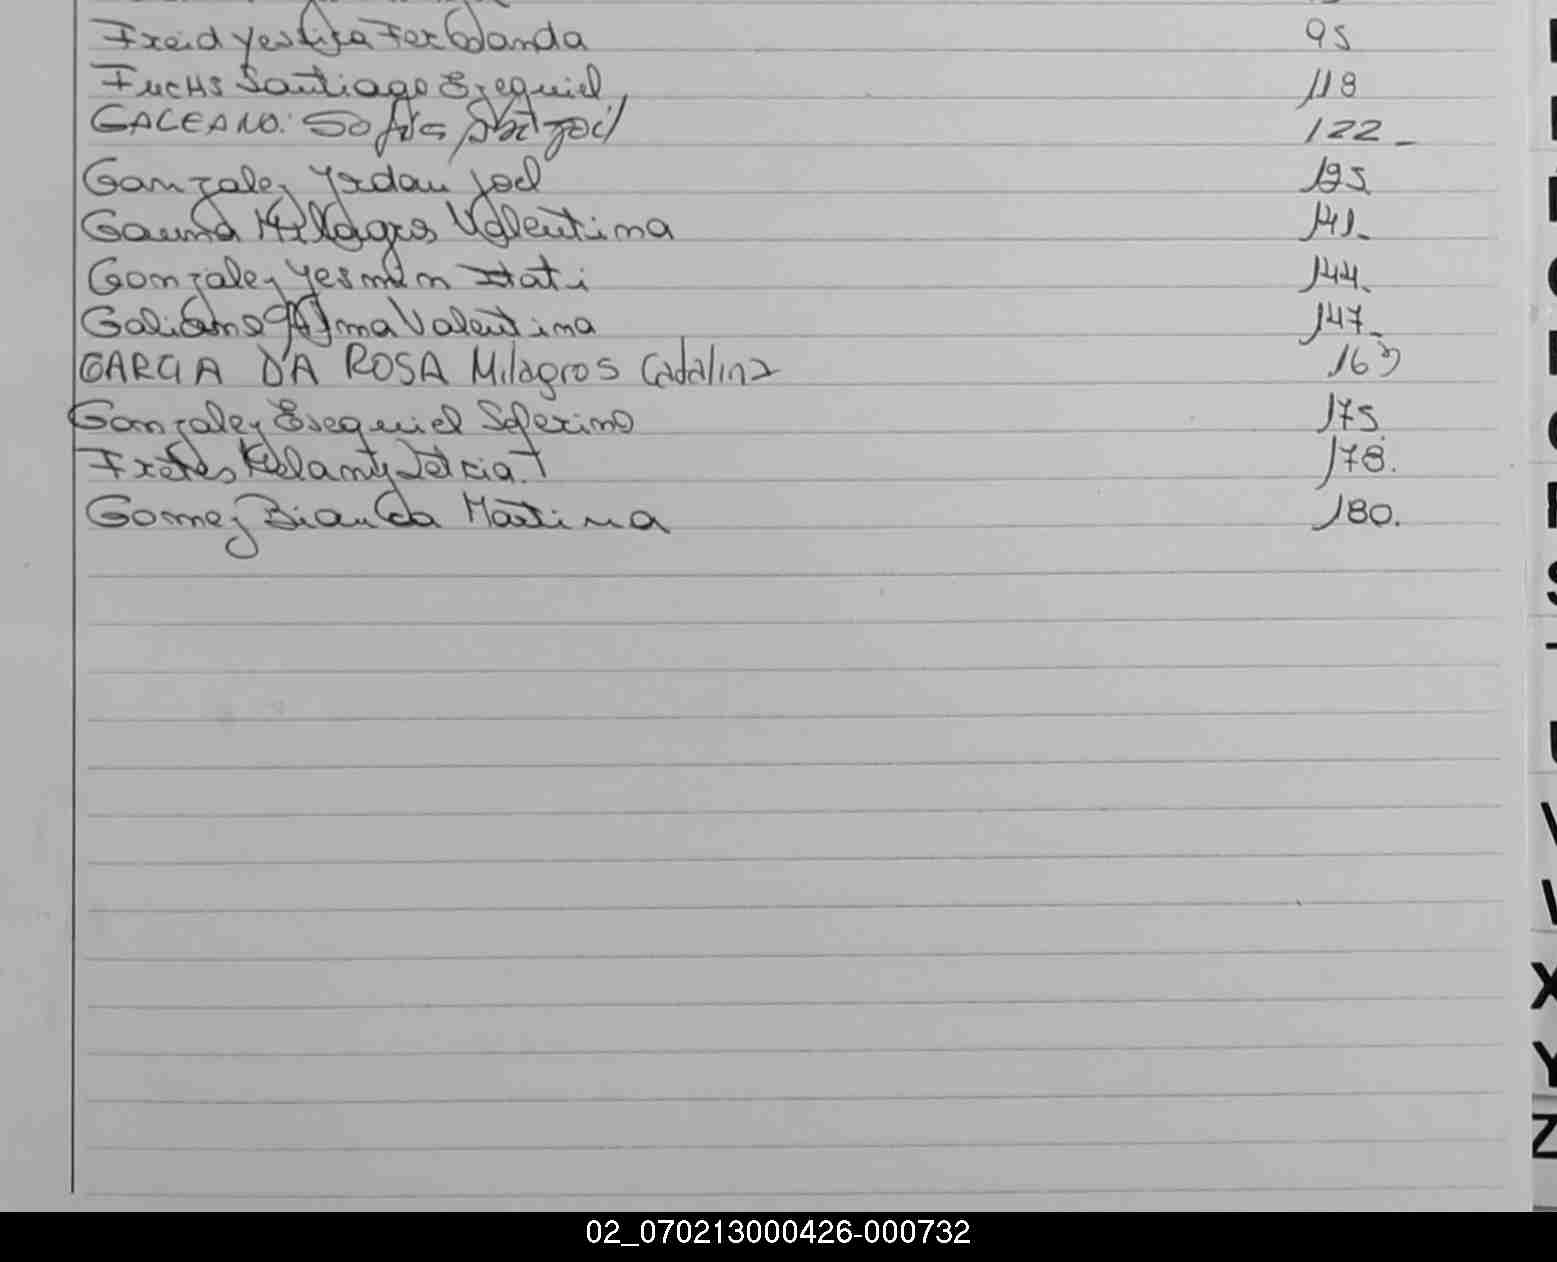 Freid Yesica Fernanda 95
Fuchs Santiago Ezequiel 118
GALEANO. Sofia Abigail 122_
Gonzalez Jordan Joel 125
Gauna Milagros Valentina 141.
Gonzalez Yesmin Itati 144.
Galiano Alma Valentina 147_
GARCIA DA ROSA Milagros Catalina 163
Gonzalez Esequiel Seferino 175
Fretes 178.
Gomez Bianca Martina 180.
X
Y
Z
02_070213000426-000732